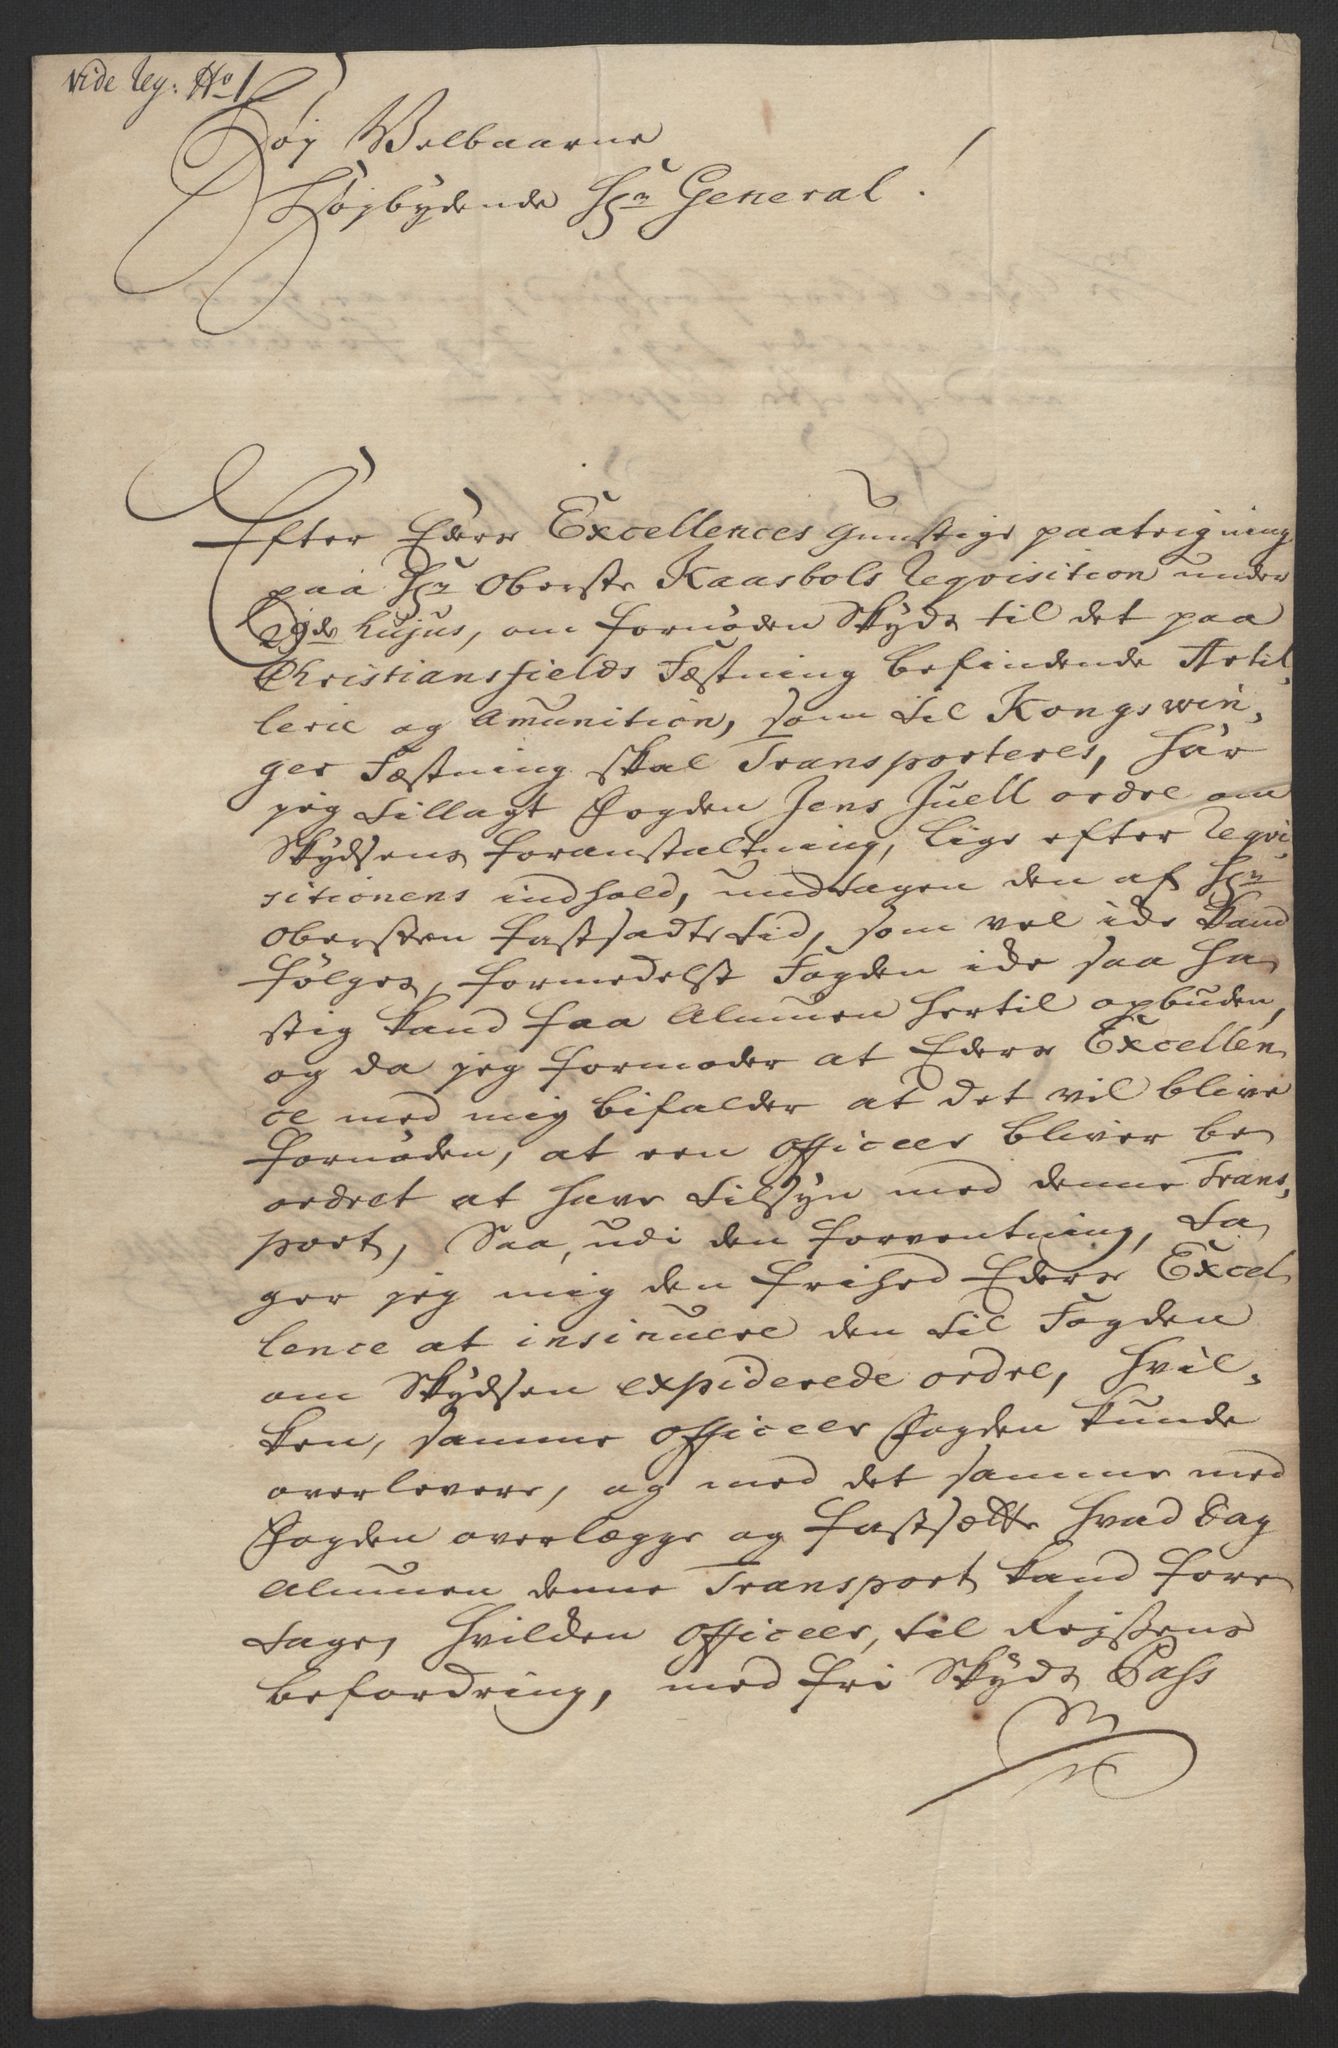 Vide reg: No 1
Høy Welbaarne
Høybydende Hr. General!
Efter Eders Excellences Gunstige paateigning
paa Hr. Oberste Kaasbøls Reqvisition under
29de hujus, om fornøden Skyds til det paa
Christiansfields Fæstning befindende Artil,
lerie og Amunition, som til Kongswin,
ger Fæstning skal Transporteres, har
jeg tillagt Fogden Jens Juell ordre om
Skydsens foranstaltning, lige efter Reqvi,
sitionens indhold, undtagen den af Hr.
Obersten fastsadte tid, som vel icke kand
følges, formedelst Fogden icke saa ha
stig kand faa Almuen hertil opbuden,
og da jeg formoder at Eders Excellen
ce med mig bifalder at det vil blive
fornøden, at een Officeer bliver be
ordret at have tilsyn med denne Trans,
port, Saa, udi den forventning, ta
ger jeg mig den frihed Eders Excel
lence at insinuere den til Fogden
om Skydsen expiderede ordre, hvil,
ken, samme Officeer Fogden kunde
overlevere, og med det samme med
Fogden overlægge og fastsætte hvad Dag
Almuen denne Transport kand fore
tage, hvilcken Officeer, til Reisens
befordring, med fri Skyds Pass